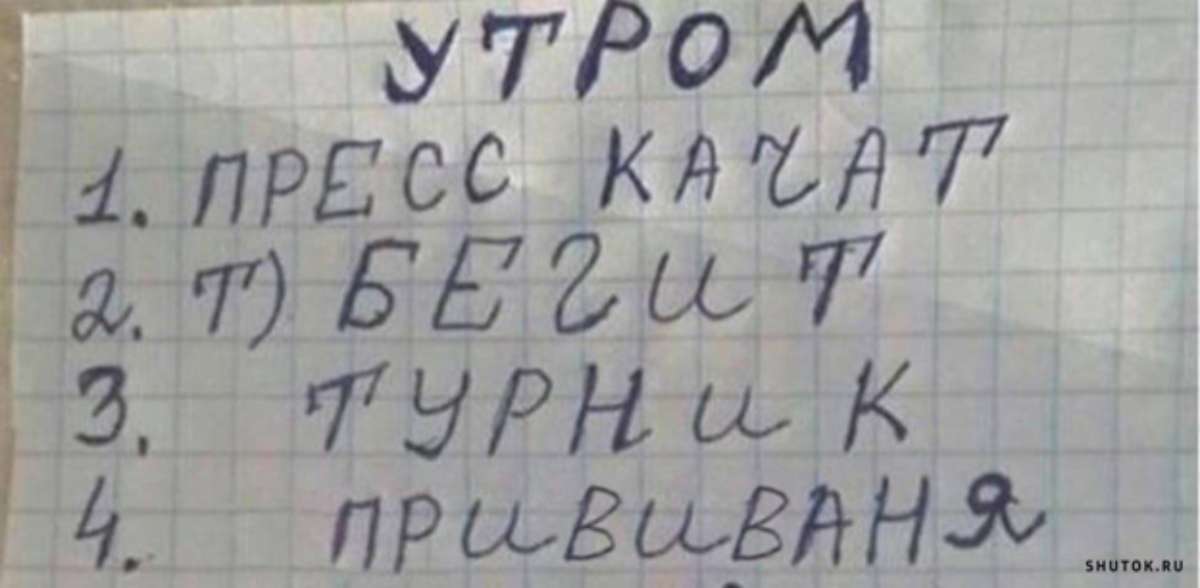 УТРОМ
1. ПРЕСС КАЧАТ
2. Т) БЕГИТ
3. ТУРНИК
4. ПРИВИВАНЯ
SHUTOK.RU